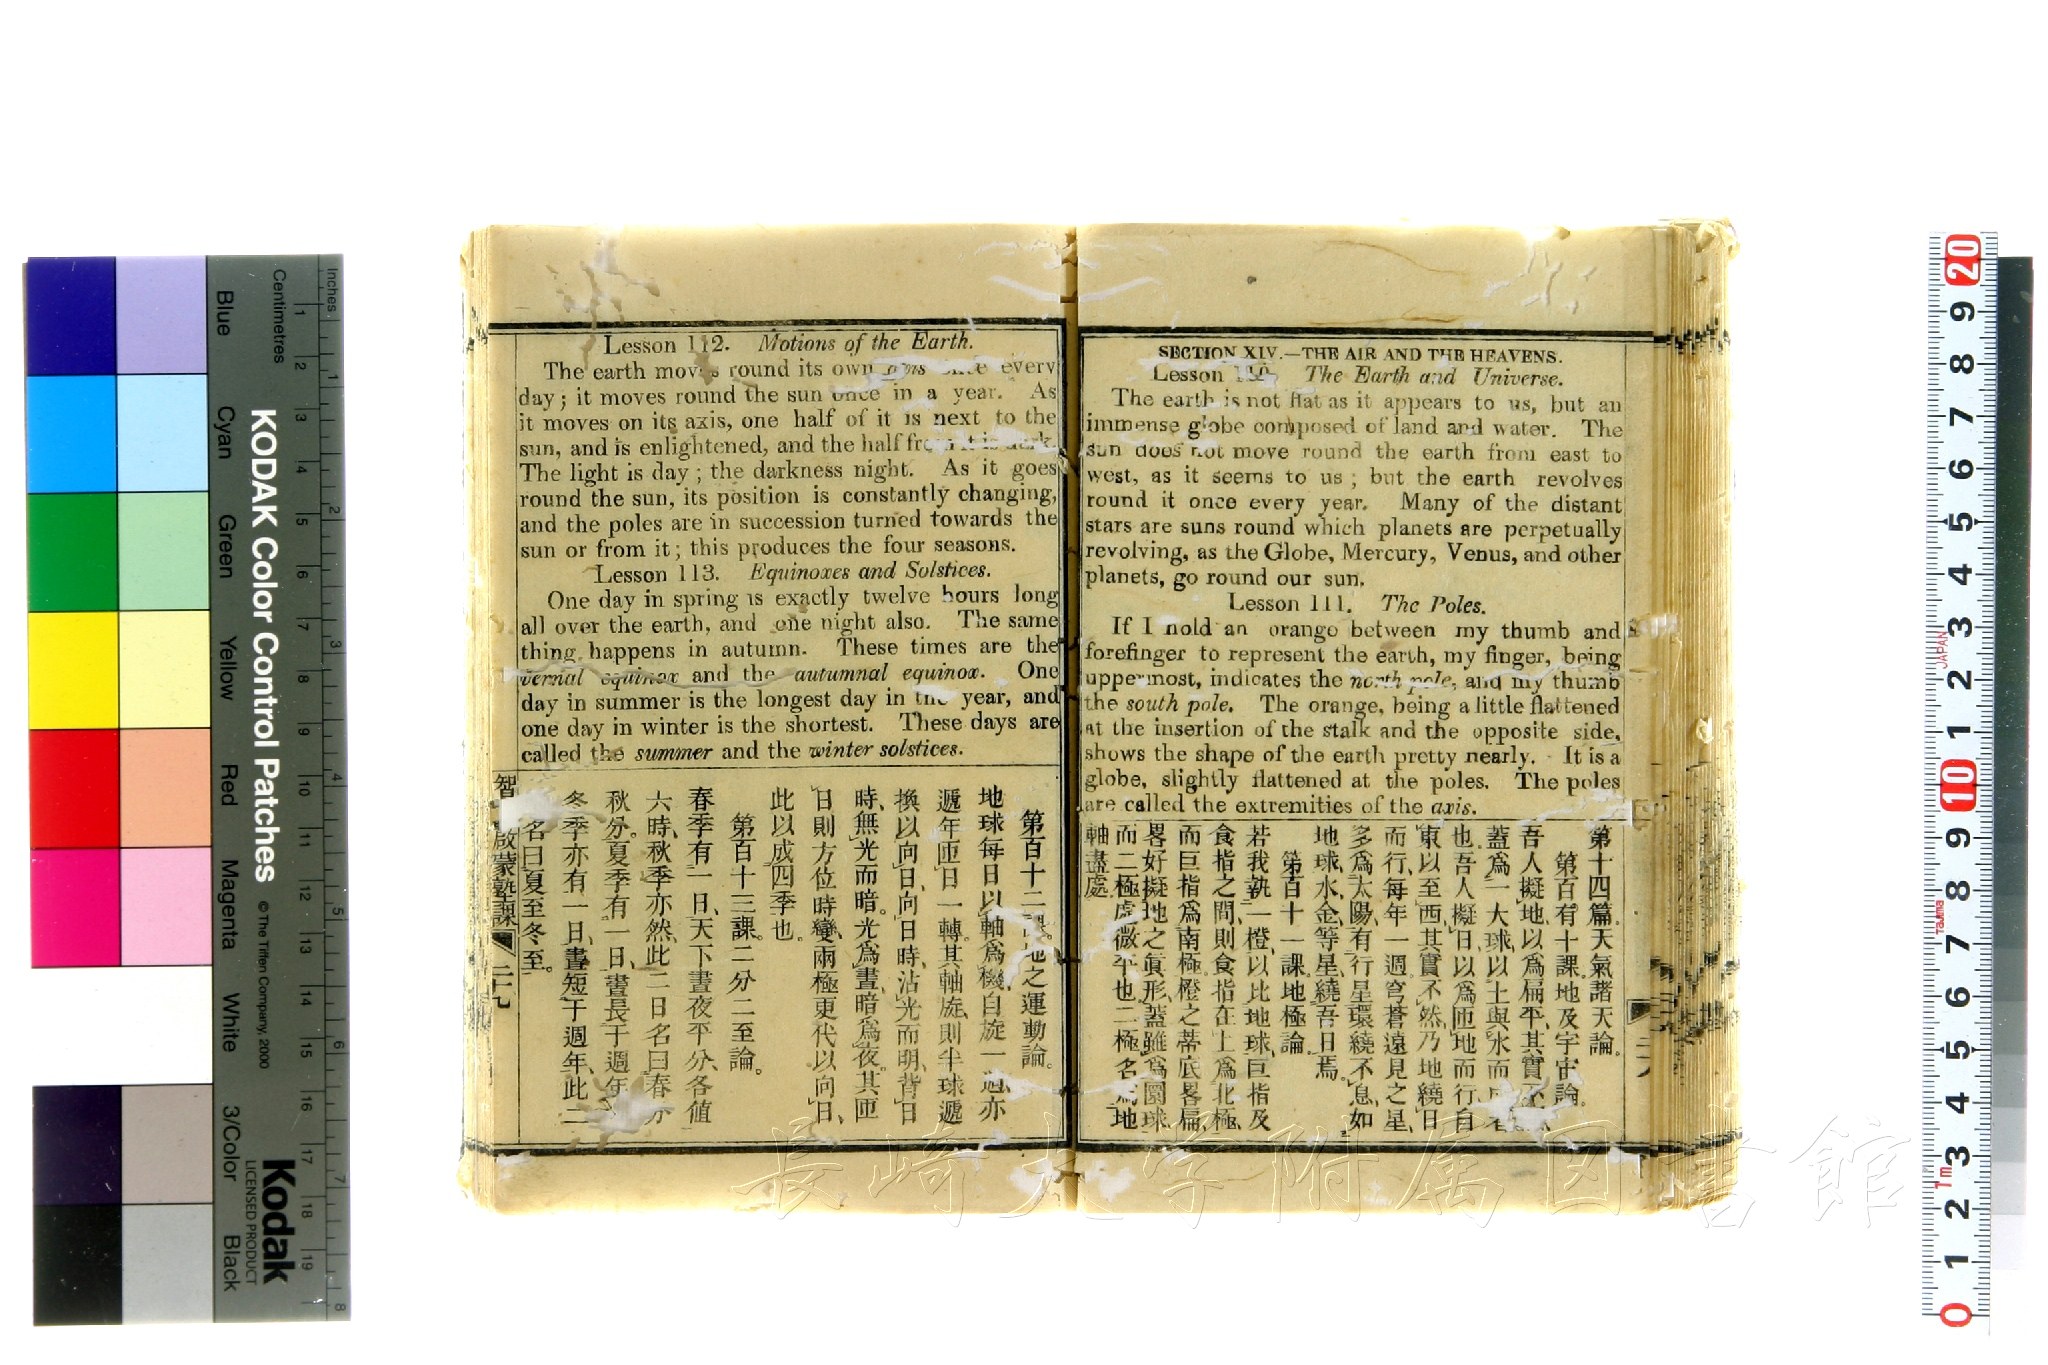 SECTION XIV.—THE AIR AND THE HEAVENS.
Lesson 110. The Earth and Universe.
The earth is not flat as it appears to us, but an
immense globe composed of land and water. The
sun does not move round the earth from east to
west, as it seems to us; but the earth revolves
round it once every year. Many of the distant
stars are suns round which planets are perpetually
revolving, as the Globe, Mercury, Venus, and other
planets, go round our sun.
Lesson 111. The Poles.
If I hold an orange between my thumb and
forefinger to represent the earth, my finger, being
uppermost, indicates the north pole, and my thumb
the south pole. The orange, being a little flattened
at the insertion of the stalk and the opposite side,
shows the shape of the earth pretty nearly. It is a
globe, slightly flattened at the poles. The poles
are called the extremities of the axis.
第十四篇。天氣諸天論。
第百有十課。地及宇宙論。
吾人擬地、以爲扁平、其實
蓋爲一大球、以土與水而
也、吾人擬日、以爲匝地而行、自
東以至西、其實不然、乃地繞日
而行、每年一週、穹蒼遠見之星、
多爲太陽、有行星環繞不息、如
地球、水、金、等星、繞吾日焉。
第百十一課。地極論。
若我執一橙、以比地球、巨指及
食指之間、則食指在上、爲北極、
而巨指爲南極。橙之蒂底畧扁、
畧好擬地之眞形、蓋雖爲圜球、
而二極處微平也、二極名爲地
軸盡處。
Lesson 112. Motions of the Earth.
The earth moves round its own axis once every
day; it moves round the sun once in a year. As
it moves on its axis, one half of it is next to the
sun, and is enlightened, and the half from it is dark.
The light is day; the darkness night. As it goes
round the sun, its position is constantly changing,
and the poles are in succession turned towards the
sun or from it; this produces the four seasons.
Lesson 113. Equinoxes and Solstices.
One day in spring is exactly twelve hours long
all over the earth, and one night also. The same
thing happens in autumn. These times are the
vernal equinox and the autumnal equinox. One
day in summer is the longest day in the year, and
one day in winter is the shortest. These days are
called the summer and the winter solstices.
第百十二課。地之運動論。
地球每日以軸爲機、自旋一週、亦
遞年匝日一轉、其軸旋、則半球遞
換以向日、向日時、沾光而明、背日
時、無光而暗。光爲晝、暗爲夜。其匝
日、則方位時變、兩極更代以向日、
此以成四季也。
第百十三課。二分二至論。
春季有一日、天下晝夜平分、各値
六時、秋季亦然、此二日名曰春分
秋分。夏季有一日、晝長于週年、
冬季亦有一日、晝短于週年、此二
名曰夏至冬至。
智 啟蒙塾課
二十九
Inches
Centimetres
KODAK Color Control Patches
© The Tiffen Company, 2000
Kodak
LICENSED PRODUCT
Blue
Cyan
Green
Yellow
Red
Magenta
White
3/Color
Black
1 2 3 4 5 6 7 8 9 10 11 12 13 14 15 16 17 18 19
1 2 3 4 5 6 7 8
20 9 8 7 6 5 4 3 2 1 10 9 8 7 6 5 4 3 2 1 0
JAPAN
Tajima
1m
長崎大学附属図書館